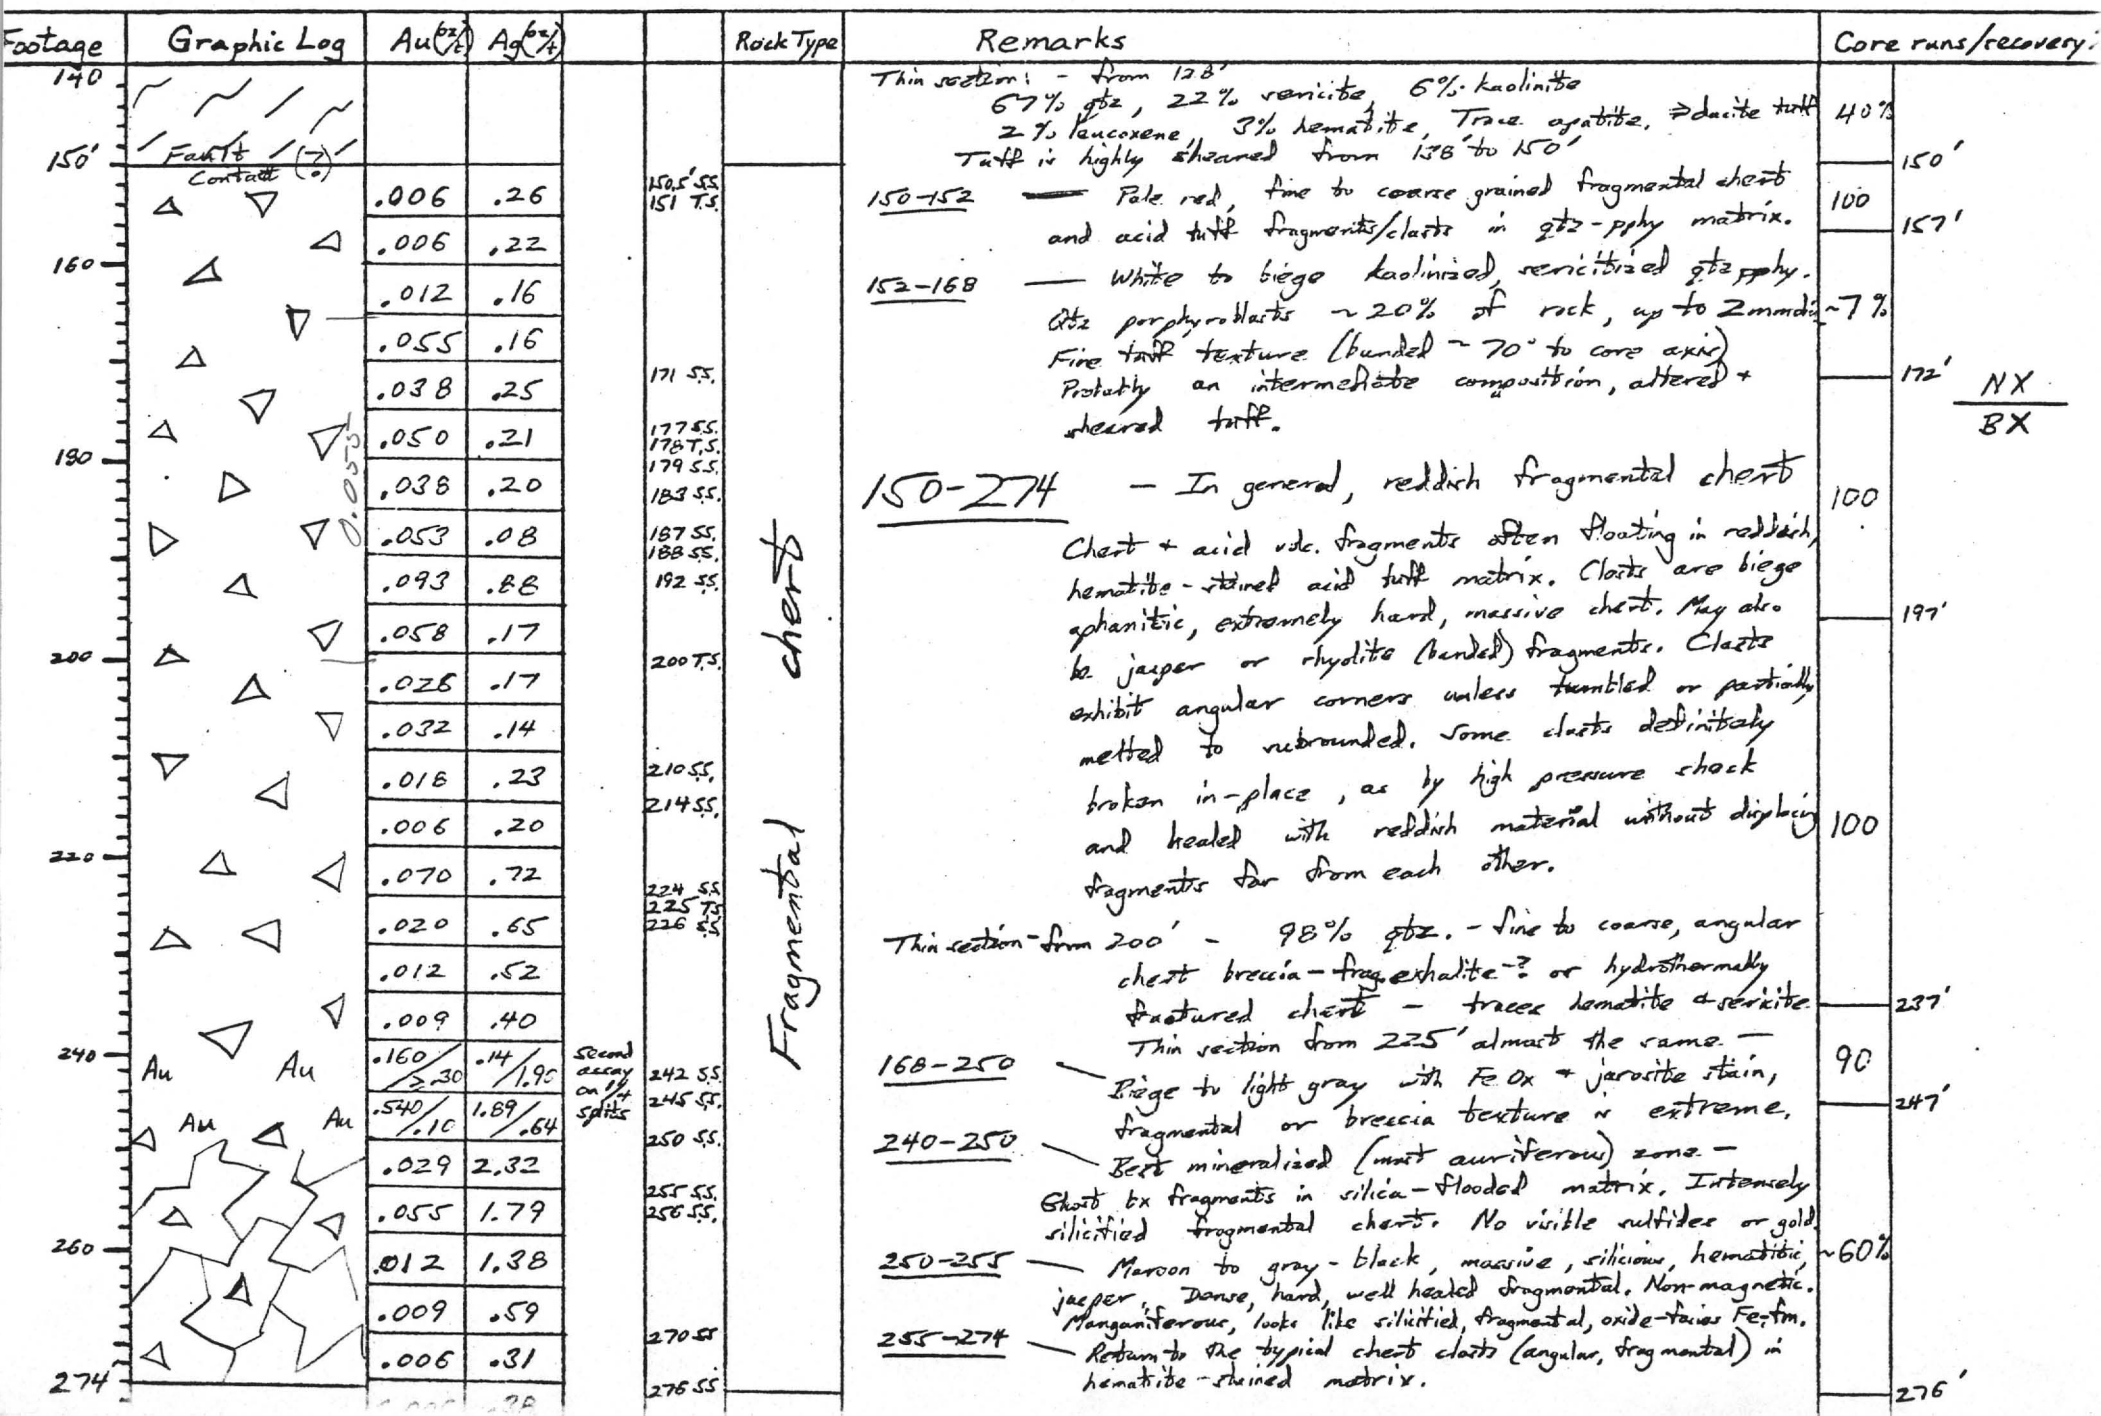 Footage Graphic Log Au(oz/t) Ag(oz/t) Rock Type Remarks Core runs/recovery
140
150'
160
180
200
220
240
260
274'
Fault
Contact (?)
0.055
Au Au
Au Au
.006 .26
.006 .22
.012 .16
.055 .16
.038 .25
.050 .21
.038 .20
.053 .08
.093 .88
.058 .17
.028 .17
.032 .14
.018 .23
.006 .20
.070 .72
.020 .65
.012 .52
.009 .40
.160/.30 .14/1.90
.540/.10 1.89/.64
.029 2.32
.055 1.79
.012 1.38
.009 .59
.006 .31
second
assay
on 1/4
splits
150.5' S.S.
151 T.S.
171 S.S.
177 S.S.
178 T.S.
179 S.S.
183 S.S.
187 S.S.
188 S.S.
192 S.S.
200 T.S.
210 S.S.
214 S.S.
224 S.S.
225 T.S.
226 S.S.
242 S.S.
245 S.S.
250 S.S.
255 S.S.
256 S.S.
270 SS
276 SS
Fragmental chert
Thin section: - from 128'
67% qtz, 22% sericite, 6% kaolinite
2% leucoxene, 3% hematite, Trace apatite, ⇒ dacite tuff
Tuff is highly sheared from 138' to 150'
150-152 — Pale red, fine to coarse grained fragmental chert
and acid tuff fragments/clasts in qtz-pphy matrix.
152-168 — White to biege kaolinized, sericitized qtz pphy.
Qtz porphyroblasts ~20% of rock, up to 2mm dia
Fine tuff texture (banded ~70° to core axis)
Probably an intermediate composition, altered +
sheared tuff.
150-274 - In general, reddish fragmental chert
Chert + acid volc. fragments often floating in reddish,
hematite-stained acid tuff matrix. Clasts are biege
aphanitic, extremely hard, massive chert. May also
be jasper or rhyolite (banded) fragments. Clasts
exhibit angular corners unless tumbled or partially
melted to subrounded. Some clasts definitely
broken in-place, as by high pressure shock
and healed with reddish material without displacing
fragments far from each other.
Thin section - from 200' - 98% qtz. - fine to coarse, angular
chert breccia - frag. exhalite -? or hydrothermally
fractured chert - traces hematite & sericite
Thin section from 225' almost the same —
168-250 — Biege to light gray with FeOx + jarosite stain,
fragmental or breccia texture is extreme.
240-250 — Best mineralized (most auriferous) zone —
Ghost bx fragments in silica-flooded matrix. Intensely
silicified fragmental chert. No visible sulfides or gold.
250-255 — Maroon to gray-black, massive, silicious, hematitic,
jasper. Dense, hard, well healed fragmental. Non-magnetic.
Manganiferous, looks like silicified, fragmental, oxide-facies Fe-fm.
255-274 — Return to the typical chert clasts (angular, fragmental) in
hematite-stained matrix.
40%
150'
100
157'
~7%
172'
NX
BX
100
197'
100
237'
90
247'
~60%
276'